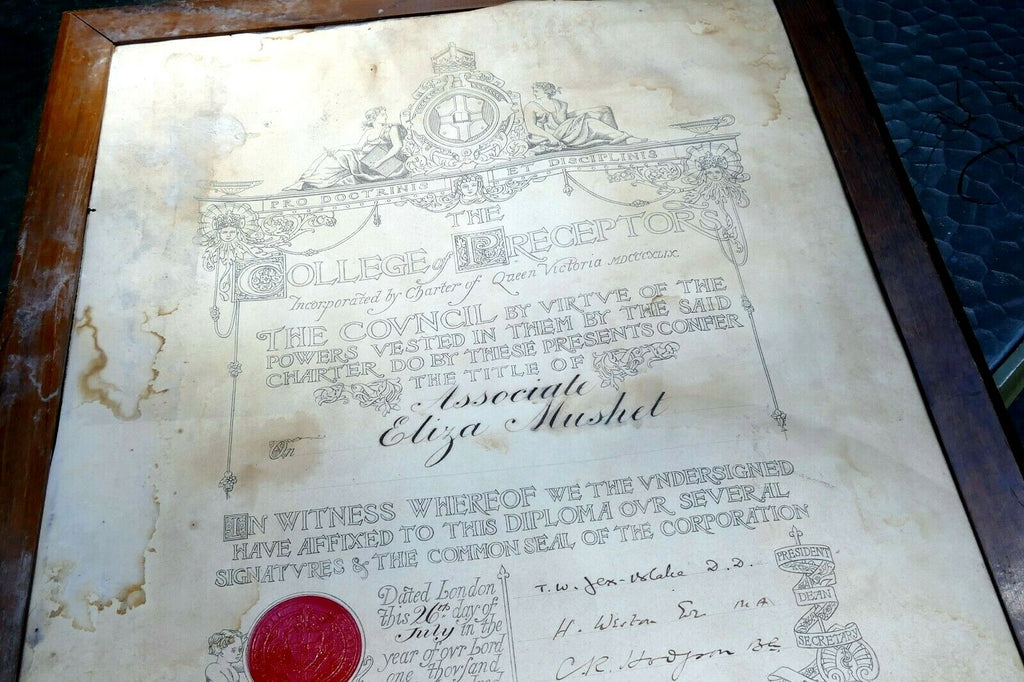 PRO DOCTRINIS ET DISCIPLINIS
THE
COLLEGE of PRECEPTORS
Incorporated by Charter of Queen Victoria MDCCCXLIX.
THE COVNCIL BY VIRTVE OF THE
POWERS VESTED IN THEM BY THE SAID
CHARTER DO BY THESE PRESENTS CONFER
THE TITLE OF
Associate
On Eliza Mushet
IN WITNESS WHEREOF WE THE VNDERSIGNED
HAVE AFFIXED TO THIS DIPLOMA OVR SEVERAL
SIGNATVRES & THE COMMON SEAL OF THE CORPORATION
Dated London
this 26th day of
July in the
year of ovr Lord
one thovsand
T. W. Jex-Blake D.D.
PRESIDENT
H. Weston M A
DEAN
C. R. Hodgson BA
SECRETARY